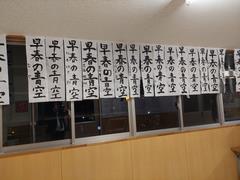 早春の青空
早春の青空
早春の青空
早春の青空
早春の青空
早春の青空
早春の青空
早春の青空
早春の青空
早春の青空
早春の青空